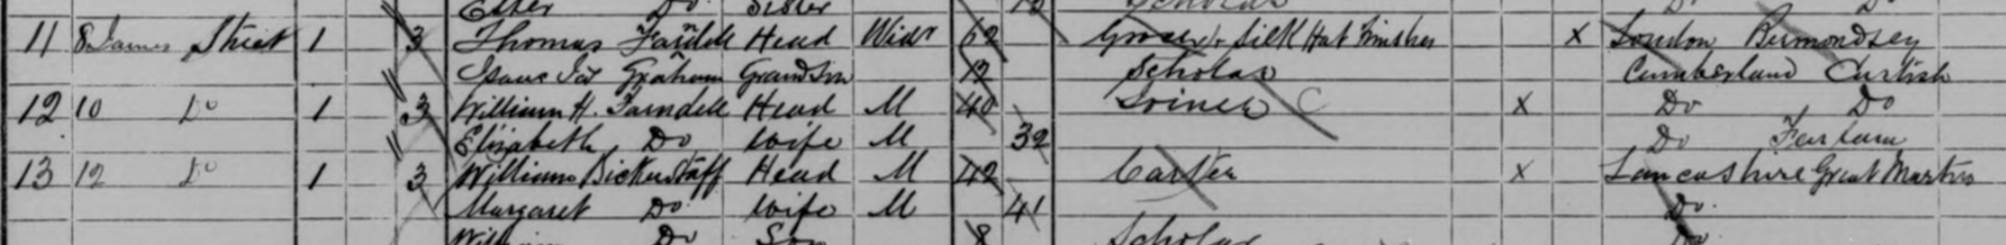 Ester Do Sister Scholar Do Do
11 8 James Street 1 3 Thomas Farndell Head Widr 62 Grocer & Silk Hat Finisher X London Bermondsey
Isaac Graham Grandson Scholar Cumberland Carlisle
12 10 Do 1 3 William H. Farndell Head M 40 C X Do Do
Elizabeth Do Wife M 32 Do Farlam
13 12 Do 1 3 William Bickerstaff Head M 42 Carter X Lancashire Great Marton
Margaret Do Wife M 41 Do
William Do Son 8 Scholar Do